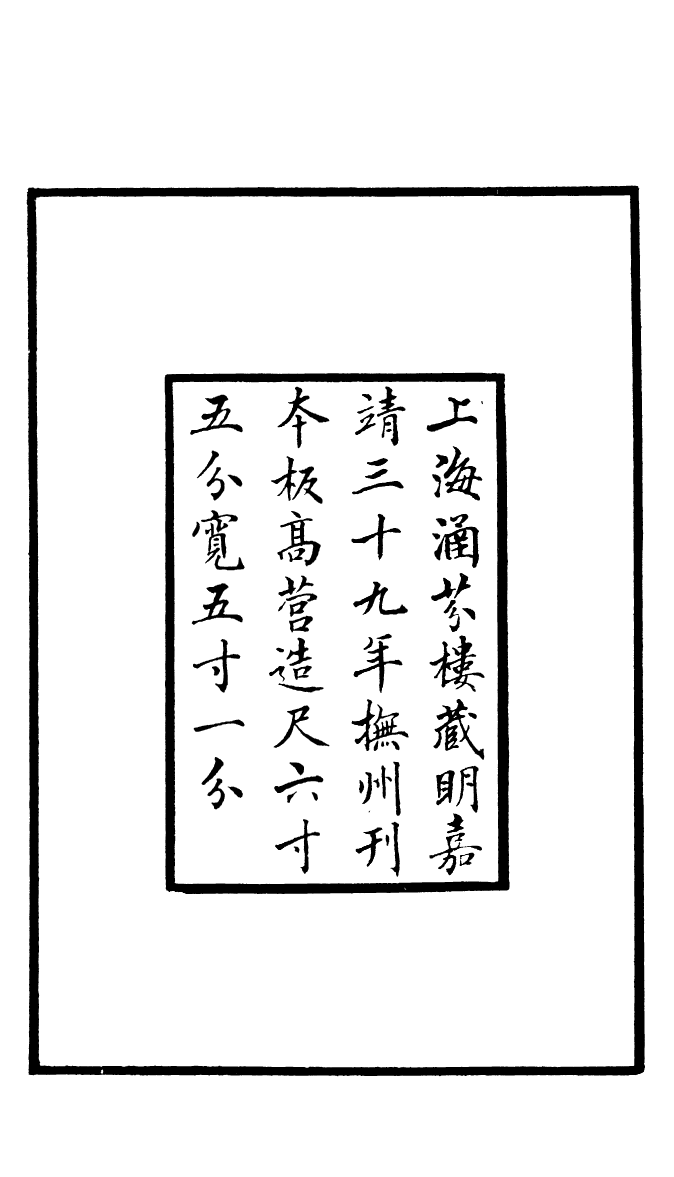 上海涵芬樓藏明嘉
靖三十九年撫州刊
本板高營造尺六寸
五分寬五寸一分